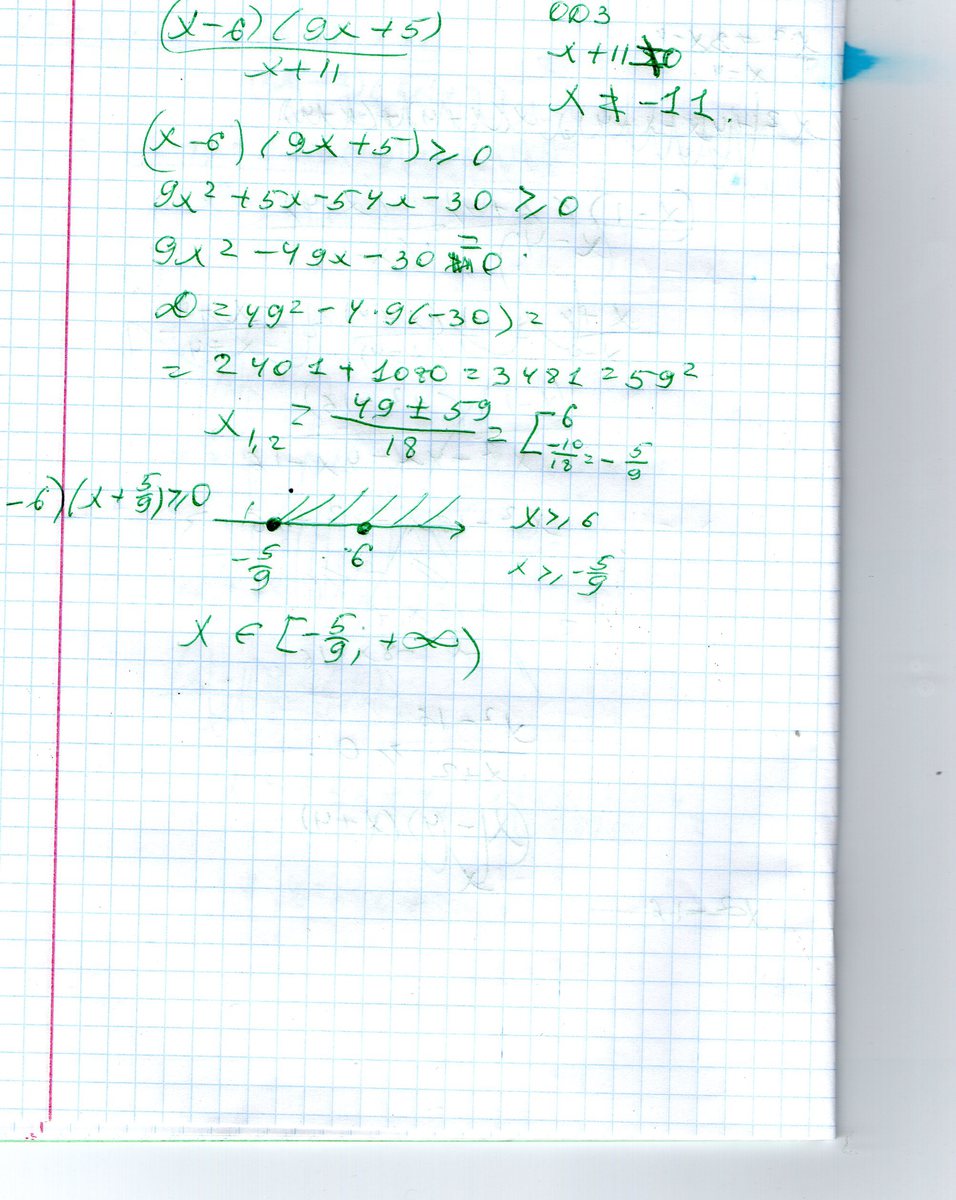 (x-6)(9x+5)
x+11
ОДЗ
x+11≠0
x ≠ -11.
(x-6)(9x+5)⩾0
9x²+5x-54x-30⩾0
9x²-49x-30=0
D=49²-4·9(-30)=
=2401+1080=3481=59²
x1,2=49±59/18=[6
-10/18=-5/9
-6)(x+5/9)⩾0
-5/9 6
x⩾6
x⩾-5/9
x∈[-5/9;+∞)